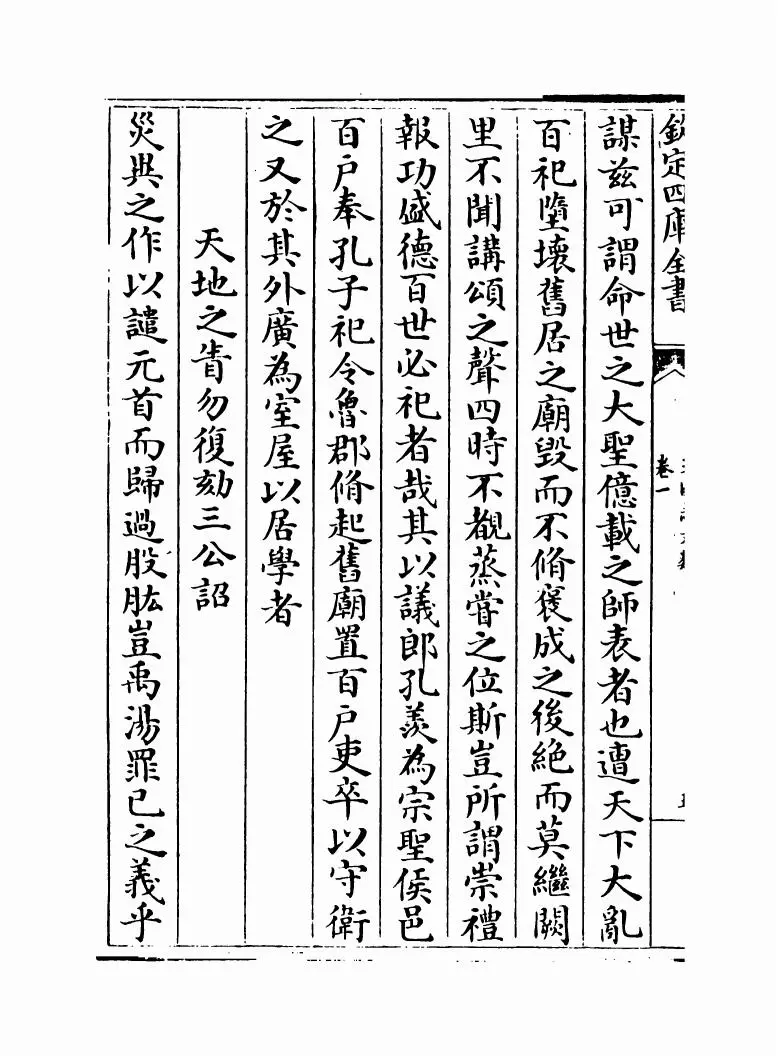 欽定四庫全書
卷一
謀兹可謂命世之大聖億載之師表者也遭天下大亂
百祀墮壞舊居之廟毀而不脩襃成之後絶而莫繼闕
里不聞講頌之聲四時不覩蒸嘗之位斯豈所謂崇禮
報功盛德百世必祀者哉其以議郎孔羨為宗聖侯邑
百戶奉孔子祀令魯郡脩起舊廟置百戶吏卒以守衛
之又於其外廣為室屋以居學者
天地之眚勿復劾三公詔
災異之作以譴元首而歸過股肱豈禹湯罪已之義乎